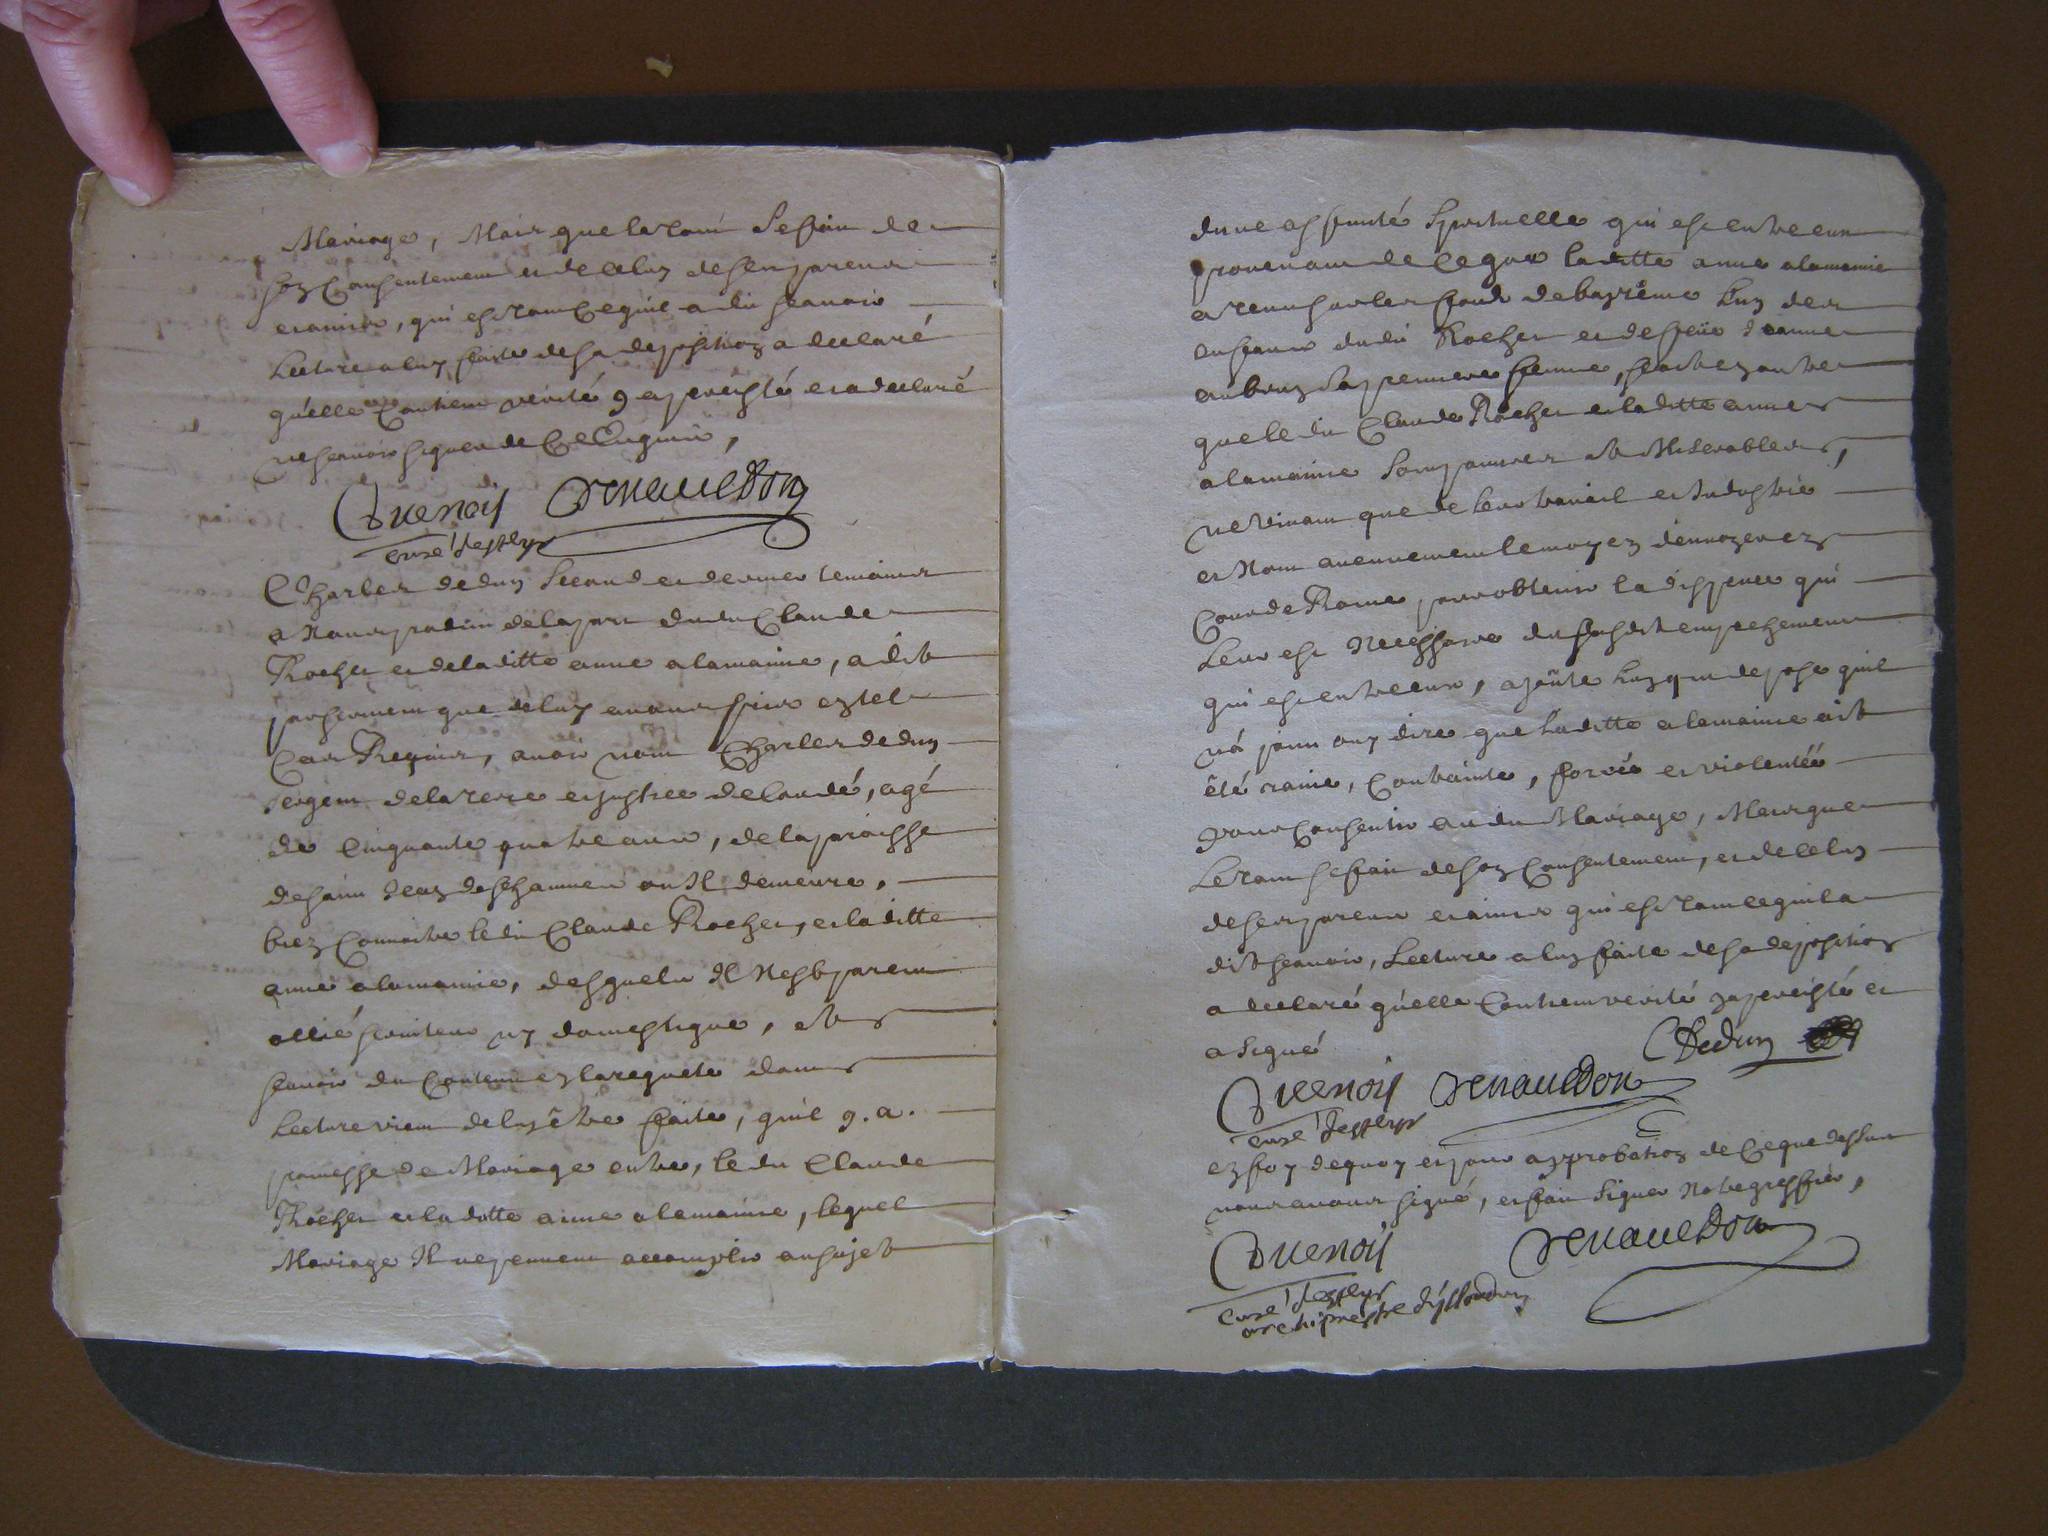 Mariage, Mais que le tout se fait de
son Consentement et de celuy de ses parens
et amis, qui est tout ce quil a dit scavoir
Lecture a luy faite de sa deposition a declaré
quelle contient verité y a persisté et a declaré
ne scavoir signer de ce Enquis,
Guenois Renauldon
curé
Charles dedun second et dernier temoins
a Nous produit de la part dudit Claude
Rocher et de la ditte anne alamaine, a dit
par serment que de luy avons fait en tel
Cas Requis, avoir nom Charles dedun
sergent de la terre et justice de , agé
de Cinquante quatre ans, de la paroisse
de saint Jean des chaumes ou Il demeure,
bien Connoitre ledit Claude Rocher, et la ditte
anne alamaine, desquels Il Nest parent
allié serviteur ny domestique, et
scavoir du Contenu en la requete dont
Lecture vient de luy être faite, quil y. a.
promesse de Mariage entre, ledit Claude
Rocher et la ditte anne alamaine, lequel
Mariage Il ne peuvent accomplir au sujet
dune affinité Spirituelle qui est entre eux
provenant de ce que la ditte anne alamaine
a tenu sur les fonds de baptême Lun des
enfans dudit Rocher et de feüe Jeanne
aubrun sa premiere femme, scait en outre
que ledit Claude Rocher et la ditte anne
alamaine sont pauvres et Miserables,
ne vivant que de leur travail et Industrie
et Nont aucunement le moyen denvoyer en
Cour de Rome pour obtenir la dispence qui
Leur est Necessaire du susdit empechement
qui est entre eux, ajoûte Luy qui depose quil
na point ouy dire que Laditte alamaine ait
êté ravie, Contrainte, forcée et violentée
pour Consentir audit Mariage, Mais que
Le tout se fait de son Consentement, et de celuy
de ses parens et amis qui est tout ce quil a
dit scavoir, Lecture a luy faite de sa deposition
a declaré quelle Contient verité y a persisté et
a signé
Dedun
Guenois Renauldon
curé
en foy de quoy et pour approbation de Ce que dessus
nous avons signé, et fait signer Notre greffier,
Guenois Renauldon
curé
archiprestre dyssoudun